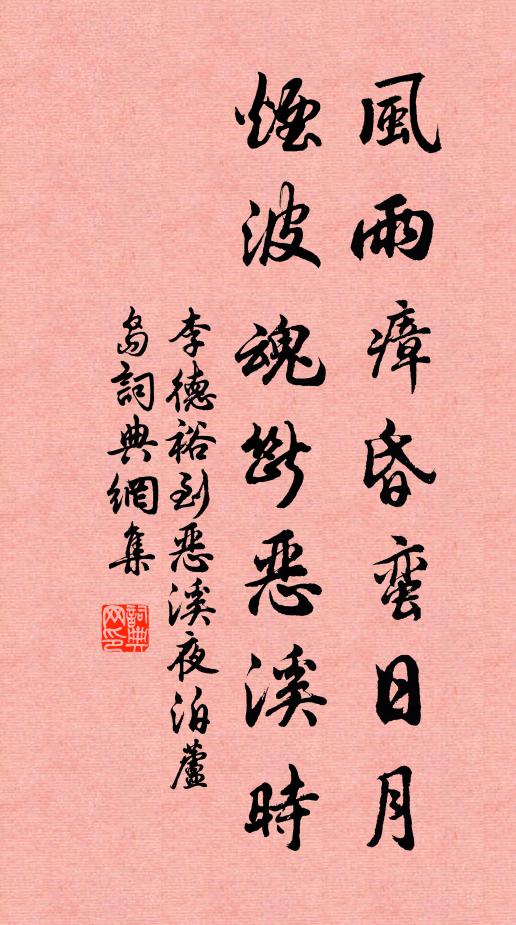 風雨瘴昏蛮日月
煙波魂斷惡溪時
李德裕到惡溪夜泊蘆
島詞典網集
詞典
网印